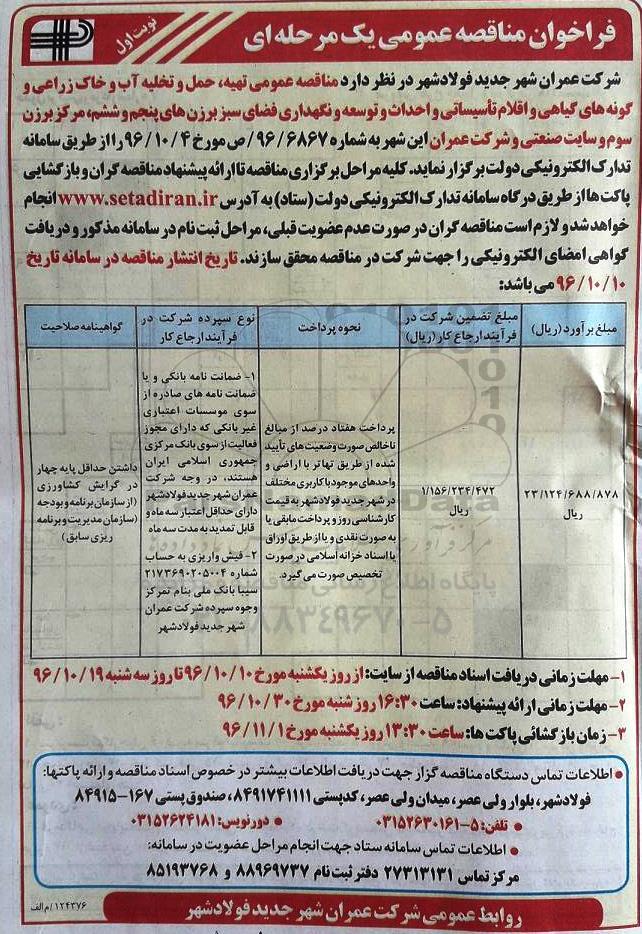 فراخوان مناقصه عمومی یک مرحله ای
نوبت اول
شرکت عمران شهر جدید فولادشهر در نظر دارد مناقصه عمومی تهیه، حمل و تخلیه آب و خاک زراعی و
گونه های گیاهی و اقلام تأسیساتی و احداث و توسعه و نگهداری فضای سبز برزن های پنجم و ششم، مرکز برزن
سوم و سایت صنعتی و شرکت عمران این شهر به شماره ۹۶/۶۸۶۷/ص مورخ ۹۶/۱۰/۴ را از طریق سامانه
تدارک الکترونیکی دولت برگزار نماید. کلیه مراحل برگزاری مناقصه تا ارائه پیشنهاد مناقصه گران و بازگشایی
پاکت ها از طریق درگاه سامانه تدارک الکترونیکی دولت (ستاد) به آدرس www.setadiran.ir انجام
خواهد شد و لازم است مناقصه گران در صورت عدم عضویت قبلی، مراحل ثبت نام در سامانه مذکور و دریافت
گواهی امضای الکترونیکی را جهت شرکت در مناقصه محقق سازند. تاریخ انتشار مناقصه در سامانه تاریخ
۹۶/۱۰/۱۰ می باشد:
مبلغ برآورد (ریال)
مبلغ تضمین شرکت در
فرآیند ارجاع کار (ریال)
نحوه پرداخت
نوع سپرده شرکت در
فرآیند ارجاع کار
گواهینامه صلاحیت
۲۳/۱۲۴/۶۸۸/۸۷۸
ریال
۱/۱۵۶/۲۳۴/۴۷۲
ریال
پرداخت هفتاد درصد از مبالغ
ناخالص صورت وضعیت های تأیید
شده از طریق تهاتر با اراضی و
واحدهای موجود با کاربری مختلف
در شهر جدید فولادشهر به قیمت
کارشناسی روز و پرداخت مابقی یا
به صورت نقدی و یا از طریق اوراق
یا اسناد خزانه اسلامی در صورت
تخصیص صورت می گیرد.
۱- ضمانت نامه بانکی و یا
ضمانت نامه های صادره از
سوی موسسات اعتباری
غیر بانکی که دارای مجوز
فعالیت از سوی بانک مرکزی
جمهوری اسلامی ایران
هستند، در وجه شرکت
عمران شهر جدید فولادشهر
دارای حداقل اعتبار سه ماه و
قابل تمدید به مدت سه ماه
۲- فیش واریزی به حساب
شماره ۲۱۷۳۶۹۰۲۰۵۰۰۴
سیبا بانک ملی بنام تمرکز
وجوه سپرده شرکت عمران
شهر جدید فولادشهر
داشتن حداقل پایه چهار
در گرایش کشاورزی
(از سازمان برنامه و بودجه
(سازمان مدیریت و برنامه
ریزی سابق)
۱- مهلت زمانی دریافت اسناد مناقصه از سایت: از روز یکشنبه مورخ ۹۶/۱۰/۱۰ تا روز سه شنبه ۹۶/۱۰/۱۹
۲- مهلت زمانی ارائه پیشنهاد: ساعت ۱۶:۳۰ روز شنبه مورخ ۹۶/۱۰/۳۰
۳- زمان بازگشائی پاکت ها: ساعت ۱۳:۳۰ روز یکشنبه مورخ ۹۶/۱۱/۱
• اطلاعات تماس دستگاه مناقصه گزار جهت دریافت اطلاعات بیشتر در خصوص اسناد مناقصه و ارائه پاکتها:
فولادشهر، بلوار ولی عصر، میدان ولی عصر، کدپستی ۸۴۹۱۷۴۱۱۱۱، صندوق پستی ۱۶۷-۸۴۹۱۵
• تلفن: ۵-۰۳۱۵۲۶۳۰۱۶۱ • دورنویس: ۰۳۱۵۲۶۲۴۱۸۱
• اطلاعات تماس سامانه ستاد جهت انجام مراحل عضویت در سامانه:
مرکز تماس ۲۷۳۱۳۱۳۱ دفتر ثبت نام ۸۸۹۶۹۷۳۷ و ۸۵۱۹۳۷۶۸
روابط عمومی شرکت عمران شهر جدید فولادشهر
۱۲۴۳۷۶/م الف